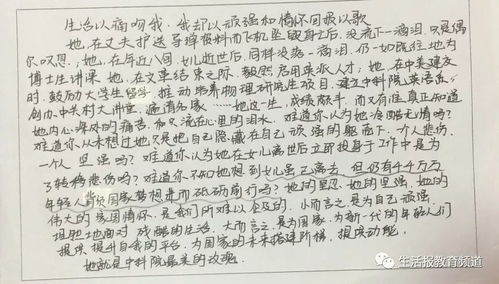 生活以痛吻我,我却以顽强和情怀回报以歌
她,在丈夫护送导弹资料而飞机坠毁身亡后,没流下一滴泪,只是偶
尔叹息;她,在年近八旬,女儿逝世后,同样没流一滴泪,仍一如既往地为
博士生讲课。她,在文革结束之际,毅然启用英才人才;她,在中美建交
时,鼓励大学生留学,推动培养物理研究生项目,建立中科院英语班,
创办中关村大讲堂,遍请名家……她这一生,成绩颇丰,而又有谁真正知道
她内心深处的痛苦,和只流在心里的泪水。难道你认为她冷酷无情吗?
难道你从未想过她只是把自己隐藏在自己顽强的躯壳下,一个人悲伤,
一个人坚强吗?难道你认为她在女儿离世后立即投身于工作中是为
了转移悲伤吗?难道你不知她想到女儿虽已离去,但仍有千千万万
年轻人背负国家梦想而砥砺前行吗?她的坚忍,她的坚强,她的
伟大的家国情怀,是我们所难以企及的,小而言之,是为自己顽强
坦驰地面对残酷的生活,大而言之,是为国家,为新一代的年轻人们
提供提升自我的平台,为国家的未来搭建阶梯,提供动能。
她就是中科院最美的玫瑰。
生活报教育频道